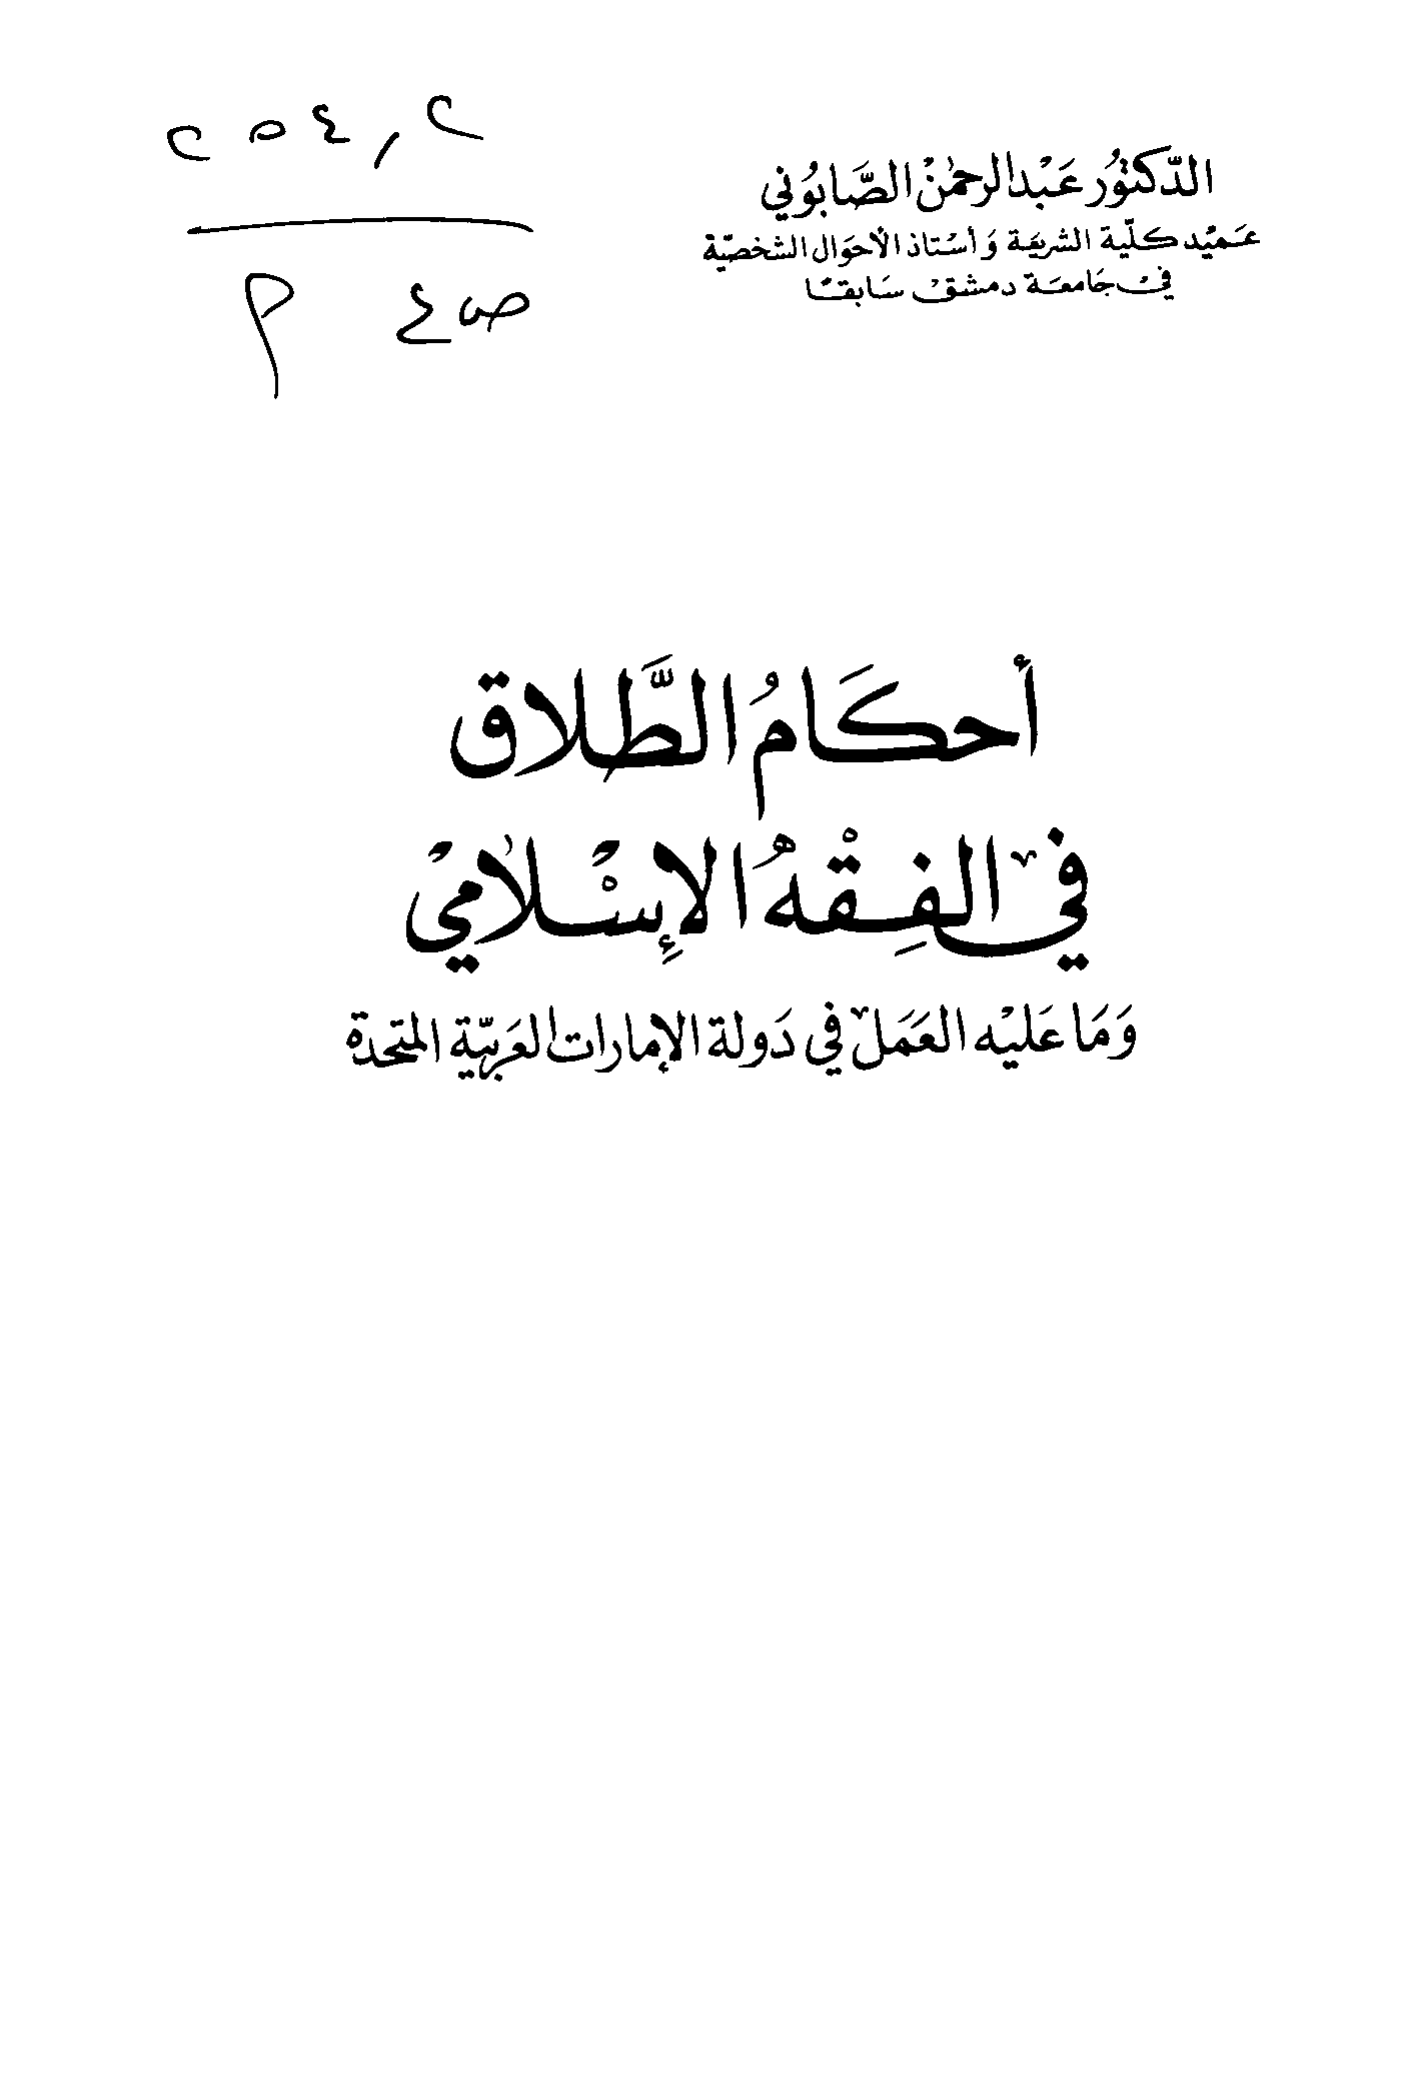 ٢٥٤,٢
ص ع م
الدّكتوُر عَبْد الرحمٰنْ الصَّابوُني
عَميْد كلّية الشريعَة وَأسْتاذ الأحوَال الشخصيّة
في جَامعَة دمشق سَابقًا
أحكَامُ الطَّلاق
في الفِقْهُ الإسْلامي
وَمَا عَليْه العَمَل في دَولة الإمارات العَربيّة المتحدة